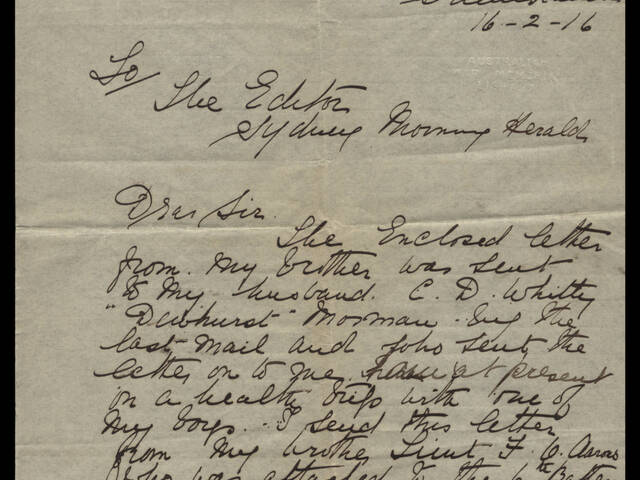 16-2-16
AUSTRALIAN
To/
The Editor
Sydney Morning Herald
Dear Sir.
The Enclosed letter
from my brother was sent
to my husband. C. D. Whitty
"Dewhurst" by the
last mail and sent the
letter on to me, at present
on a health trip with one of
my boys. I send this letter
from my brother Lieut F.
who was attached to the 6th